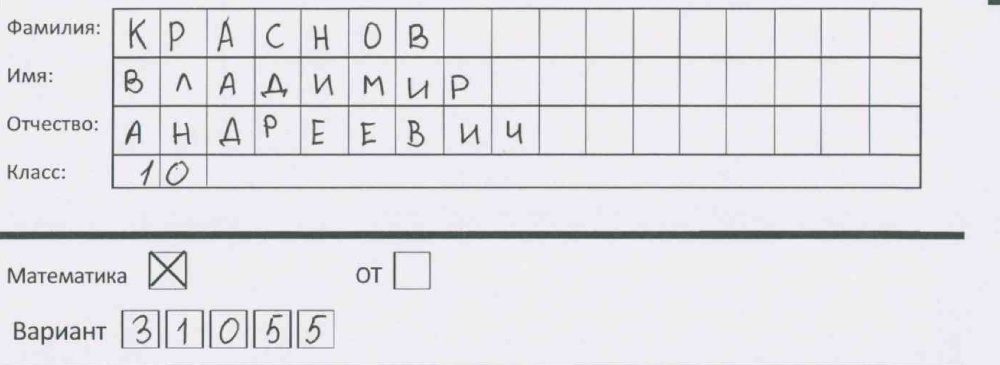 Фамилия: КРАСНОВ
Имя: ВЛАДИМИР
Отчество: АНДРЕЕВИЧ
Класс: 10
Математика ☒ от ☐
Вариант 31055